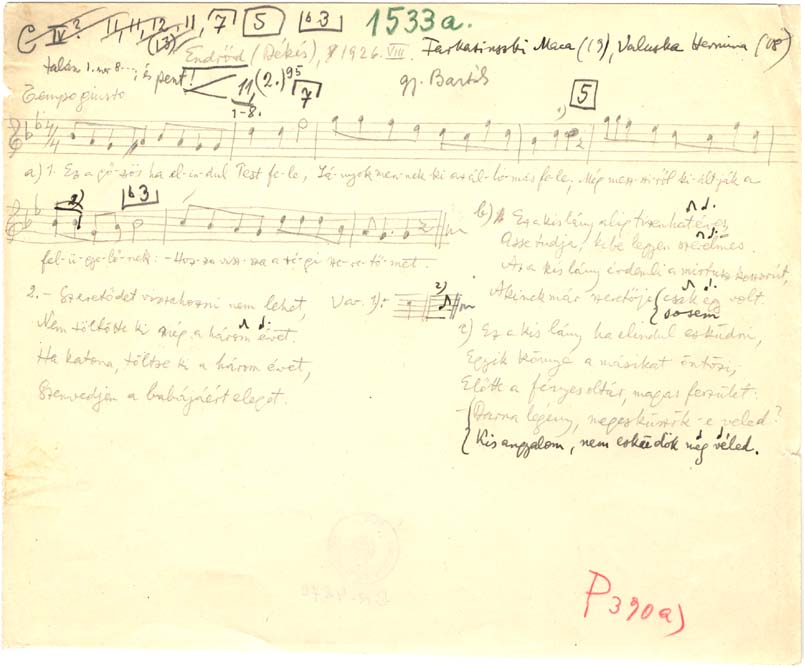 C IV.? 11, 11, 12, 11, 7 5 b3 1533a.
(13)
Endrőd (Békés), 1926. VIII. Farkasinszki Maca (19), Valuska Hermina (08)
talán 1. sor 8...; és pent! 11, (2.) 95 7 gy. Bartók
1-8.
Tempo giusto 5
4/4
a) 1. Ez a gő-zös ha el-in-dul Pest fe-le, Lá-nyok men-nek ki az ál-lo-más fe-le, Még mesz-szi-ről ki-ált-ják a
2) b3
fel-ü-gye-lő-nek: -Hoz-za visz-sza a ré-gi sze-re-tő-met.
2. - Szeretődet visszahozni nem lehet,
Nem töltötte ki még a három évet.
Ha katona, töltse ki a három évet,
Szenvedjen a babájáért eleget.
Var. 1): 2)
b) Ez a kis lány alig tizenhat éves,
Azse tudja, kibe legyen szerelmes.
Az a kis lány érdemli a mirtusz koszorút,
Akinek már szeretője csak egy volt.
sosem
c) Ez a kis lány ha elindul esküdni,
Egyik könnye a másikat öntözi,
Előtt a fényes oltár, magas feszület.
- Barna legény, megesküszök-e veled?
Kis angyalom, nem esküdök még véled.
P390a)